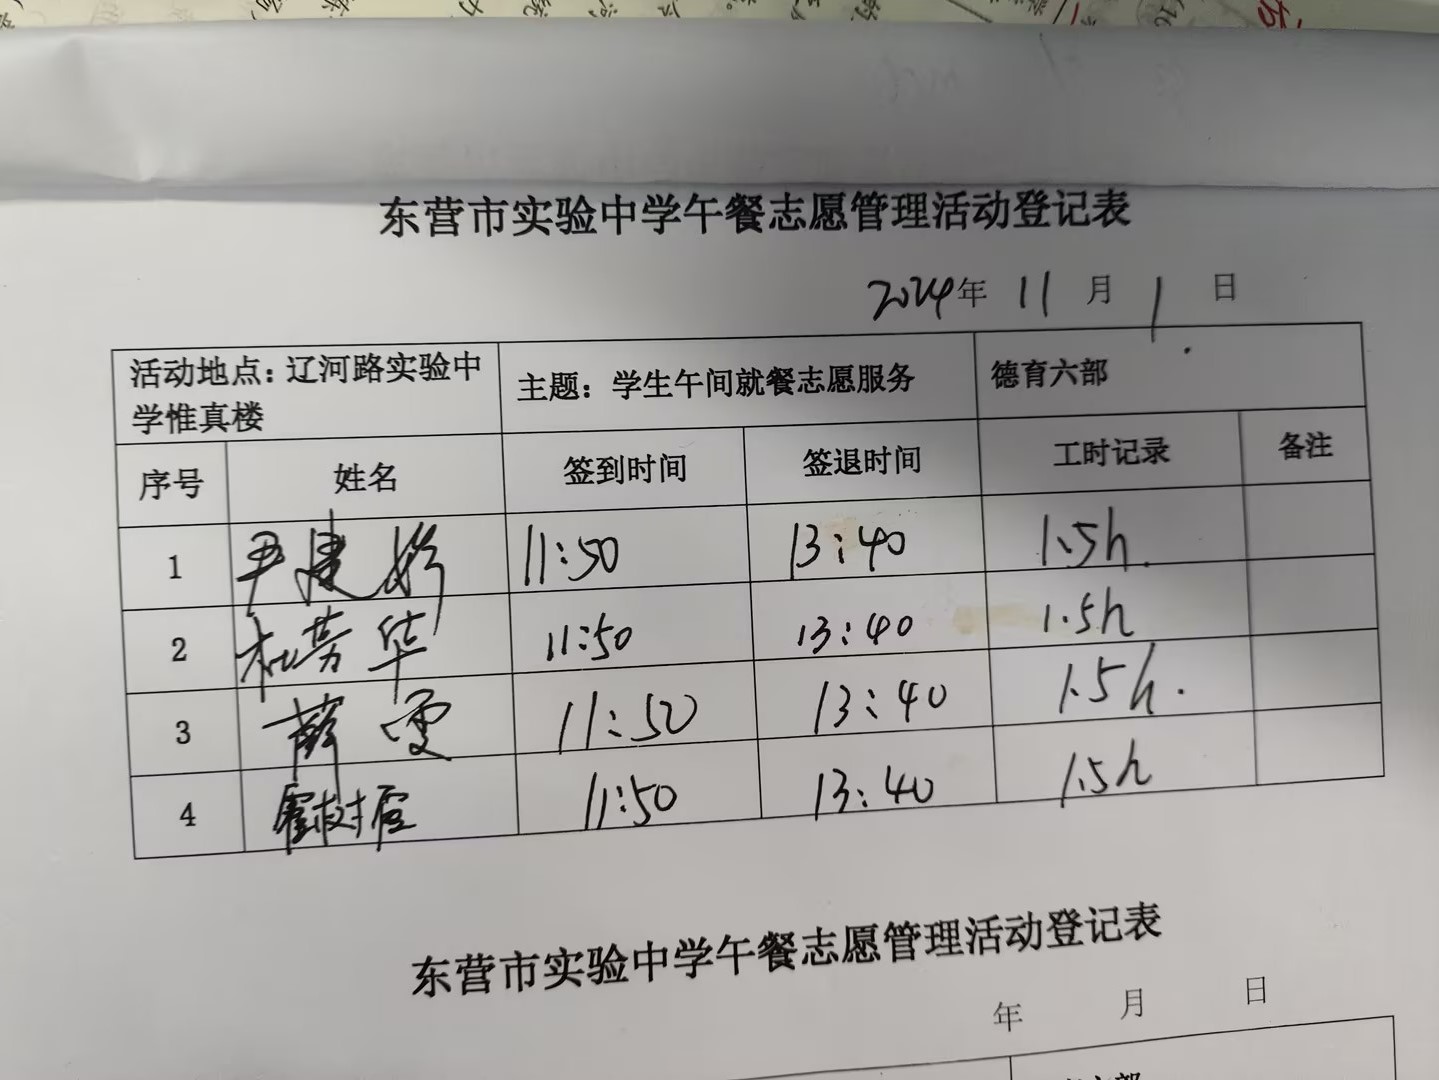 东营市实验中学午餐志愿管理活动登记表
2024年 11 月 1 日
活动地点：辽河路实验中
学惟真楼
主题：学生午间就餐志愿服务
德育六部
序号 姓名 签到时间 签退时间 工时记录 备注
1 尹建 11:50 13:40 1.5h.
2 杜芳华 11:50 13:40 1.5h
3 薛雯 11:50 13:40 1.5h.
4 11:50 13:40 1.5h
东营市实验中学午餐志愿管理活动登记表
年 月 日